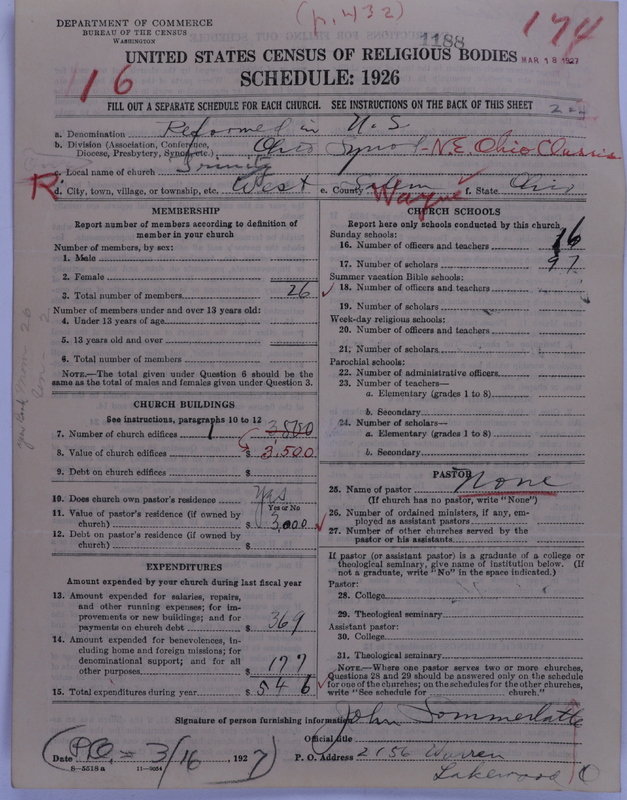 (p. 432)
DEPARTMENT OF COMMERCE
BUREAU OF THE CENSUS
WASHINGTON
1188
174
MAR 18 1927
UNITED STATES CENSUS OF RELIGIOUS BODIES
116
SCHEDULE: 1926
FILL OUT A SEPARATE SCHEDULE FOR EACH CHURCH. SEE INSTRUCTIONS ON THE BACK OF THIS SHEET
a. Denomination Reformed in U.S
b. Division (Association, Conference, Diocese, Presbytery, Synod, etc.) Ohio Synod - N.E. Ohio Classis
c. Local name of church Trinity
R d. City, town, village, or township, etc. West Salem e. County Wayne f. State Ohio
MEMBERSHIP
Report number of members according to definition of
member in your church
Number of members, by sex:
1. Male
2. Female
3. Total number of members 26
Number of members under and over 13 years old:
4. Under 13 years of age
5. 13 years old and over
6. Total number of members
NOTE.—The total given under Question 6 should be
the same as the total of males and females given under Question 3.
CHURCH BUILDINGS
See instructions, paragraphs 10 to 12
7. Number of church edifices 1 3,500
8. Value of church edifices $ 3,500
9. Debt on church edifices $
10. Does church own pastor's residence Yes
Yes or No
11. Value of pastor's residence (if owned by
church) $ 3,000
12. Debt on pastor's residence (if owned by
church) $
EXPENDITURES
Amount expended by your church during last fiscal year
13. Amount expended for salaries, repairs,
and other running expenses; for im-
provements or new buildings; and for
payments on church debt $ 369
14. Amount expended for benevolences, in-
cluding home and foreign missions; for
denominational support; and for all
other purposes $ 177
15. Total expenditures during year $ 546
CHURCH SCHOOLS
Report here only schools conducted by this church
Sunday schools:
16. Number of officers and teachers 16
17. Number of scholars 97
Summer vacation Bible schools:
18. Number of officers and teachers
19. Number of scholars
Week-day religious schools:
20. Number of officers and teachers
21. Number of scholars
Parochial schools:
22. Number of administrative officers
23. Number of teachers—
a. Elementary (grades 1 to 8)
b. Secondary
24. Number of scholars—
a. Elementary (grades 1 to 8)
b. Secondary
PASTOR
25. Name of pastor None
(If church has no pastor, write "None")
26. Number of ordained ministers, if any, em-
ployed as assistant pastors
27. Number of other churches served by the
pastor or his assistants
If pastor (or assistant pastor) is a graduate of a college or
theological seminary, give name of institution below. (If
not a graduate, write "No" in the space indicated.)
Pastor:
28. College
29. Theological seminary
Assistant pastor:
30. College
31. Theological seminary
NOTE.—Where one pastor serves two or more churches,
Questions 28 and 29 should be answered only on the schedule
for one of the churches; on the schedules for the other churches,
write "See schedule for church."
Signature of person furnishing information John Sommerlatte
Official title
Date P.O. = 3/16, 1927
P. O. Address 2156 Warren
Lakewood O
8—5518 a 11—9054